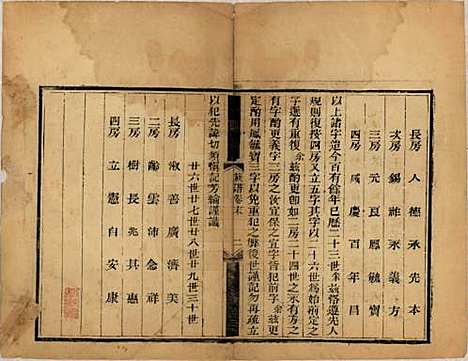 長房 人德承先本
次房 錫祚承義方
三房 元良勳毓寶
四房 咸慶百年昌
以上諸字迄今百有餘年已歷二十三世余茲循遵先人
規則復按四房又立五字其以二十六世爲始前定之
字遞有重復余茲更卽如三房二十四世之承有方
有字酌更義字三房之汝宜改字宜字皆犯前字余茲更
定酌用勳毓寶三字以免重犯之弊後世謹記勿再疏立
以犯先諱切須愼記芳綸謹議
族譜卷末 二
廿六世廿七世廿八世廿九世三十世
長房 淑善廣濟美
二房 齡雲沛念祥
三房 樹長兆其惠
四房 立憲自安康